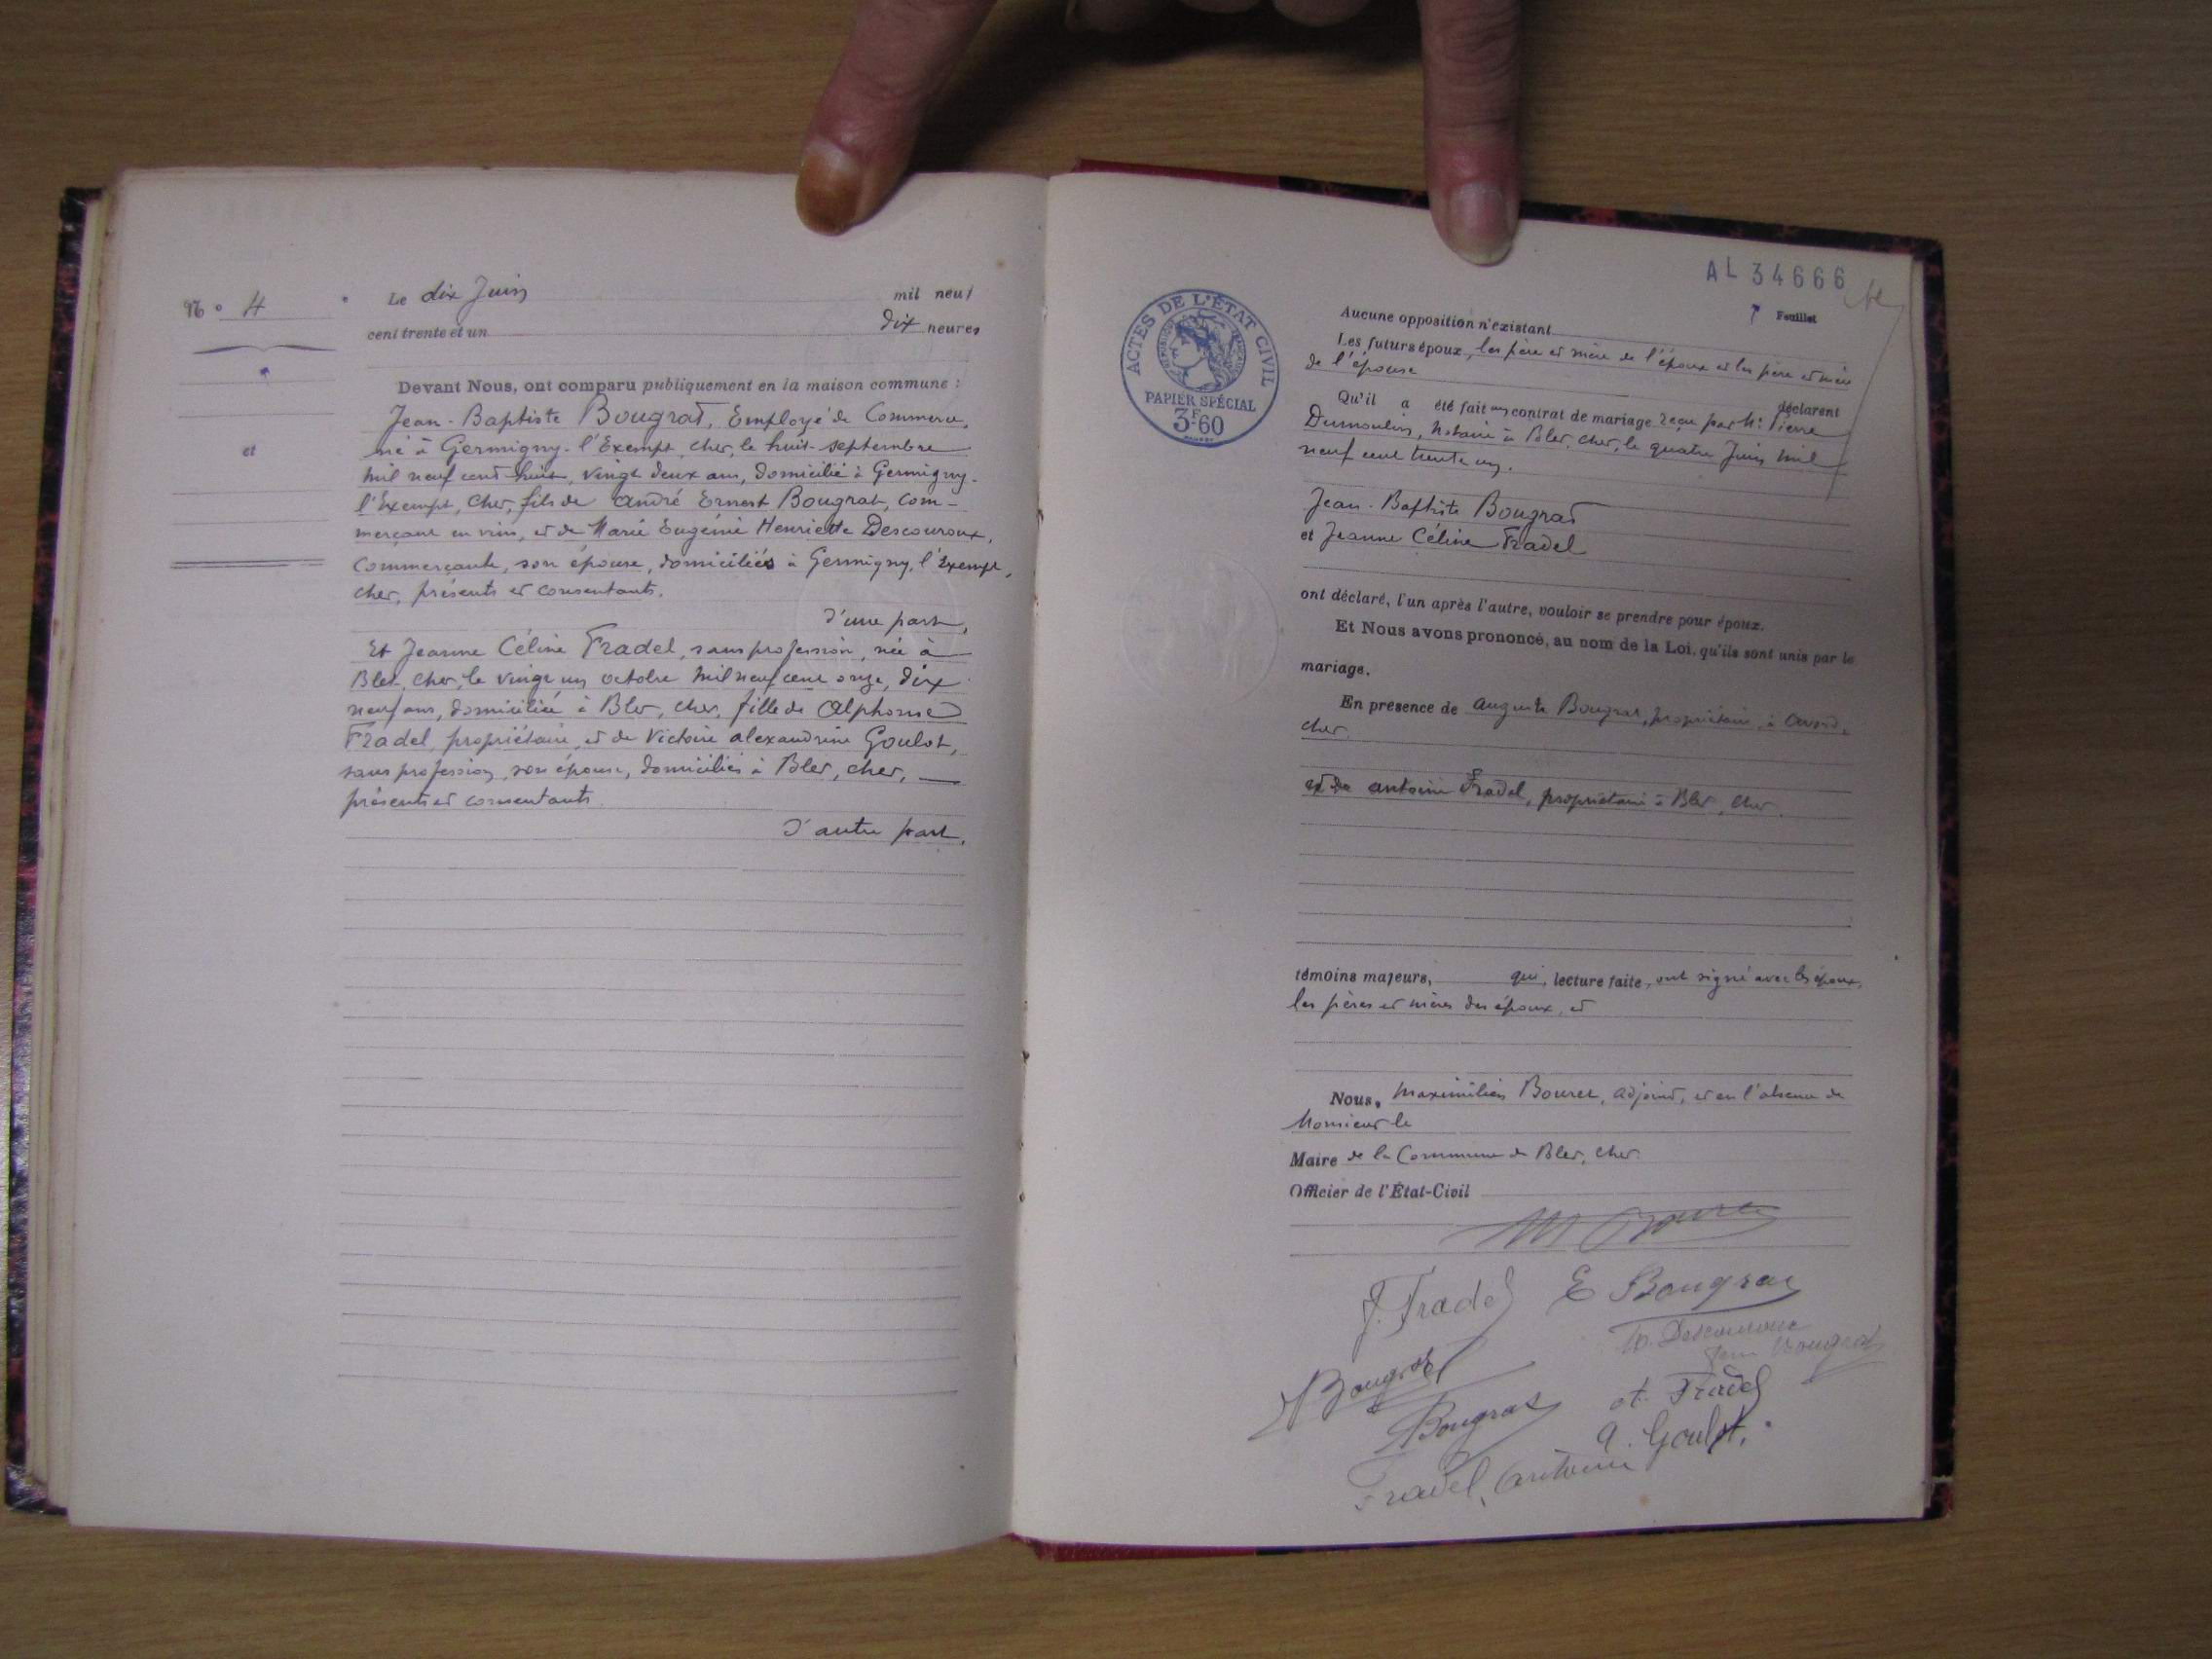 No 4
Le dix Juin mil neuf
cent trente et un dix heures
Devant Nous, ont comparu publiquement en la maison commune :
Jean-Baptiste Bougrat, Employé de Commerce,
né à Germigny-l'Exempt, Cher, le huit septembre
mil neuf cent huit, vingt deux ans, domicilié à Germigny-
et
l'Exempt, Cher, fils de André Ernest Bougrat, com-
merçant en vins, et de Marie Eugénie Henriette Descouroux,
Commerçante, son épouse, domiciliés à Germigny, l'Exempt,
Cher, présents et consentants.
d'une part,
Et Jeanne Céline Fradel, sans profession, née à
Blet, Cher, le vingt un octobre mil neuf cent onze, dix
neuf ans, domiciliée à Blet, Cher, fille de Alphonse
Fradel, propriétaire, et de Victoire alexandrine Goulot,
sans profession, son épouse, domiciliés à Blet, Cher,
présents et consentants.
d'autre part,
AL 34666
7 Feuillet
ACTES DE L'ÉTAT CIVIL
RÉPUBLIQUE FRANÇAISE
PAPIER SPÉCIAL
3F.60
Aucune opposition n'existant
Les futurs époux, les père et mère de l'époux et les père et mère
de l'épouse déclarent
Qu'il a été fait un contrat de mariage reçu par Me Pierre
Dumoulin, notaire à Blet, Cher, le quatre Juin mil
neuf cent trente un.
Jean-Baptiste Bougrat
et Jeanne Céline Fradel
ont déclaré, l'un après l'autre, vouloir se prendre pour époux.
Et Nous avons prononcé, au nom de la Loi, qu'ils sont unis par le
mariage.
En présence de Auguste Bougrat, propriétaire, à Avord,
Cher.
et de antoine Fradel, propriétaire à Blet, Cher.
témoins majeurs, qui, lecture faite, ont signé avec les époux,
les pères et mères des époux, et
Nous, Maximilien Bouret, adjoint, et en l'absence de
Monsieur le
Maire de la Commune de Blet, Cher.
Officier de l'État-Civil
M Bouret
J. Fradel E Bougrat
Descouroux
Bougrat
Bougrat
Bougrat
A. Fradel
A. Goulot.
Fradel, Antoine